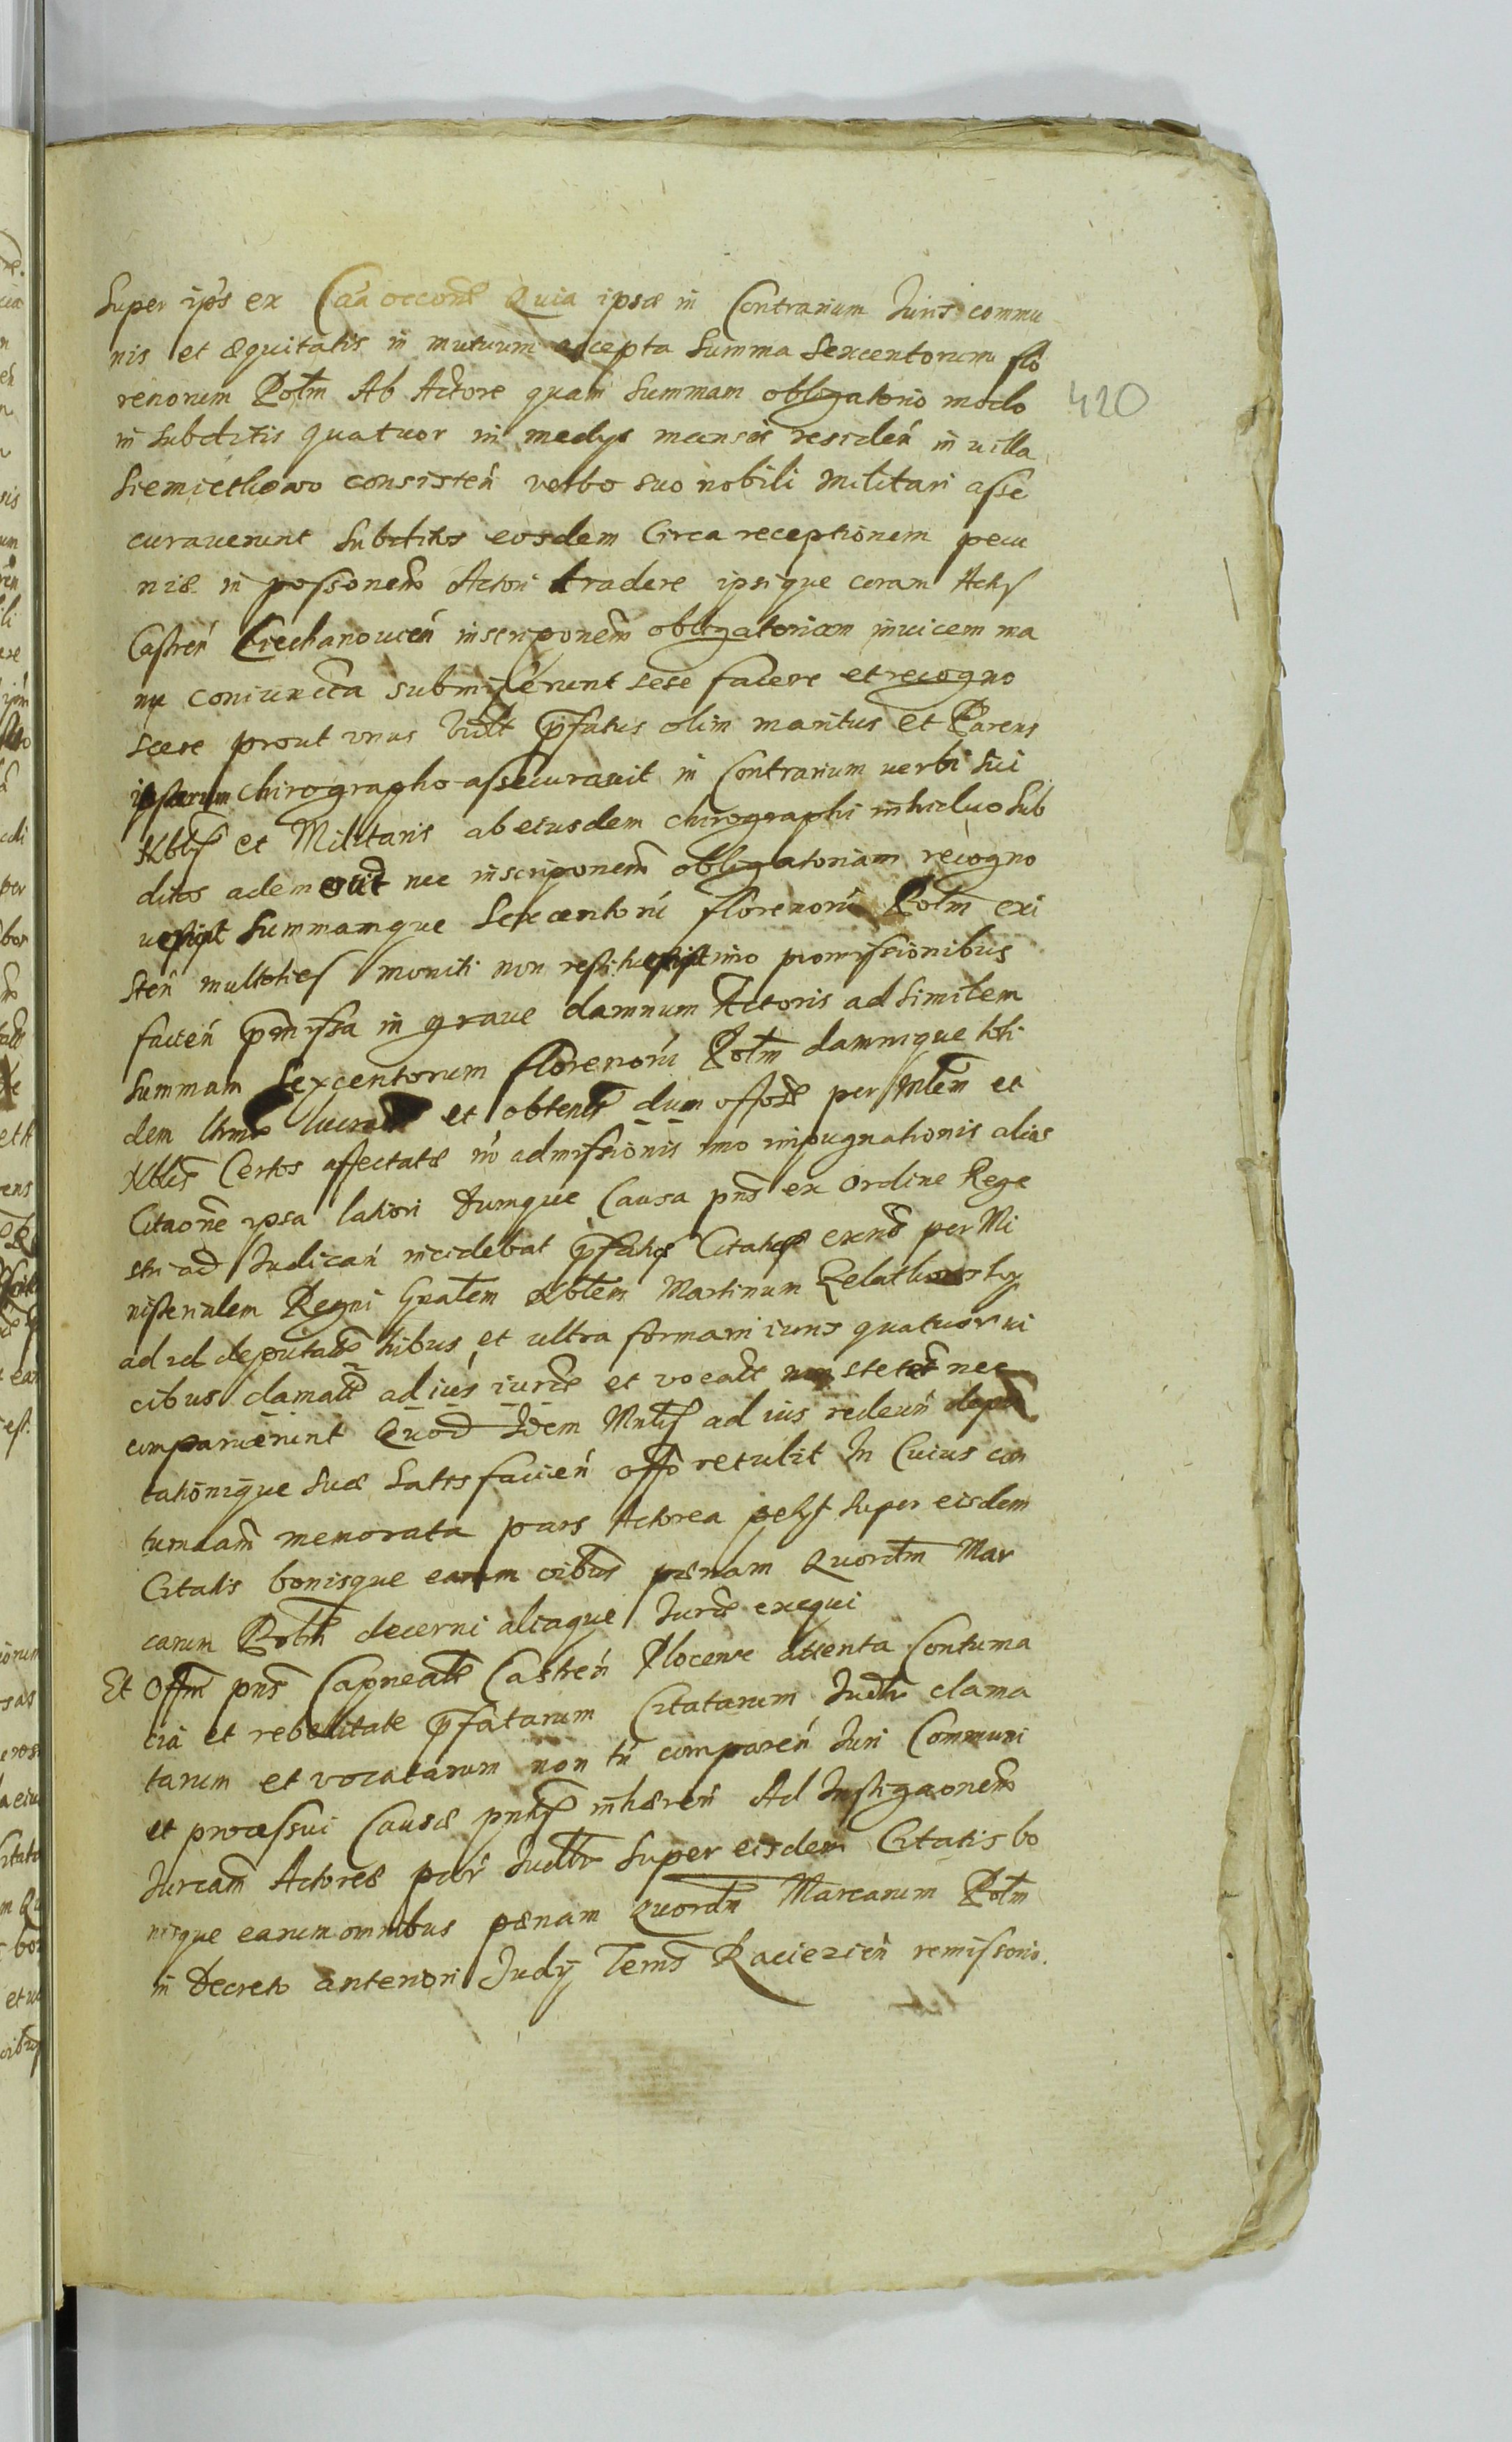 super ip̄s ex Ca͠a occōne Quia ipsæ in Contrarium Juris commu
nis et æquitatis in mutuum accepta Summa Sexcentorum flo
renorum Pol̄m Ab Actore quam Summam obligatorio modo
in subditis quatuor in medys mansis resideń in villa
Siemiethowo consisteń verbo suo nobili Militari asse
curaverunt Subditos eosdem Circa receptionem pecu
niæ in possonem̄ Actori tradere ipsique coram Actis
Castreń Ciechanovień inscriponem̄ obligatoriam invicem ma
nu coniuncta submiserunt sese facere et recogno
scere prout unus p̄fatus olim maritus et Parens
ipsarum chirographo assecuravit in Contrarium verbi sui
Nblis et Militaris ab eiusdem chirographi Sub
ditos nec inscriponem̄ obligatoriam recogno
Summamque Sexcentorū florenorū Pol̄m exi
steń multoties moniti non imo promissionibus
facień p̄missa in grave damnum Actoris ad similem
Summam Sexcentorum florenorū Pol̄m damnique toti
dem et dum offose per Mlem et
Nblem Certos affectatæ admissionis imo impugnationis alias
Citaōne ipsa latiori Dumque Causa pn̄s ex Ordine Rege
stri ad Judicań incidebat p̄fatas Citatas per Mi
nisterialem Regni Gn̄alem Nblem Martinum
ad id deputatū tribus et ultra formam iuris quatuor vi
cibus clamatæ ad ius iurde et vocatæ non nec
comparuerunt Quod Idem Mnlis ad ius redeuń depu
tationique suæ Satisfacień offo retulit In Cuius con
tumaciam memorata pars Actorea petyt super eisdem
Citatis bonisque earum oībus pænam Quord̄m Mar
carum Pol̄m decerni aliaque Jurde exequi
Et Offm pn̄s Capneale Castreń Plocense attenta Contuma
cia et rebellitate p̄fatarum Citatarum Judlr clama
tarum et vocatarum non tn̄ compareń Juri Communi
et processui Causæ pn̄tis inhæreń Ad Instigaōnem
Juream̄ Actoreæ par̄ Judlr super eisdem Citatis bo
nisque earum omnibus pænam Quord̄m Marcarum Pol̄m
in Decreto anteriori Judy Terris Racieziēn remissorio.
420